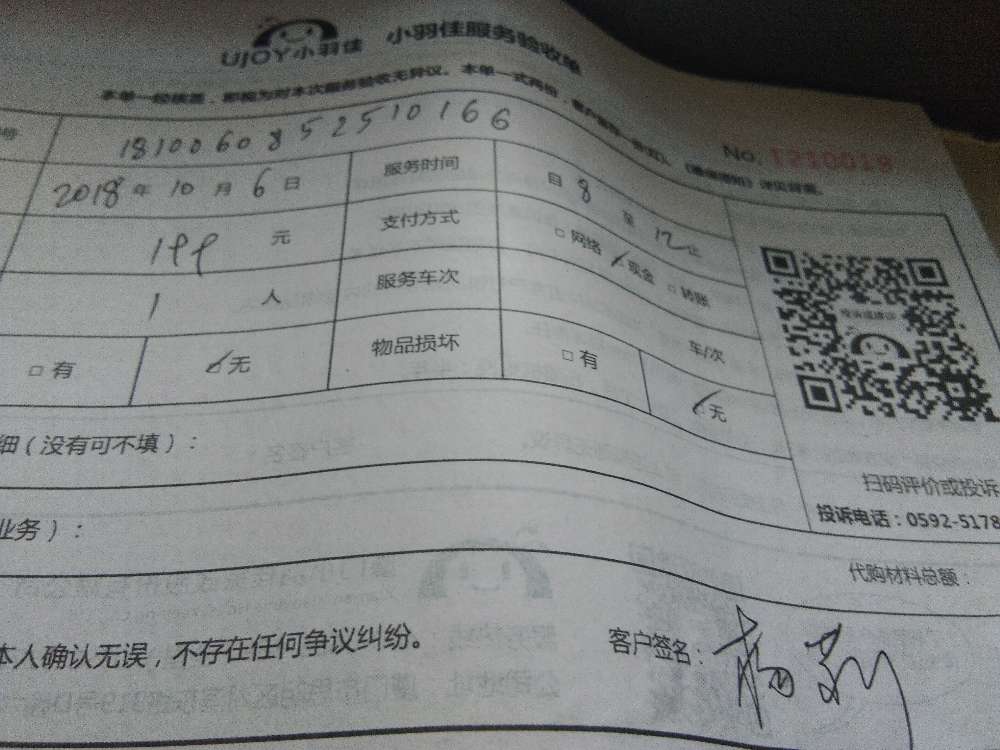 UJOY小羽佳 小羽佳服务验收单
本单一经核签，即视为对本次服务验收无异议。本单一式两份，
No. 1210028
号 18100608525510166
2018年10月6日 服务时间 自8至12止
199元 支付方式 □网络 ✓现金 □转账
1人 服务车次 车/次
□有 ✓无 物品损坏 □有 ✓无
细（没有可不填）：
扫码评价或投诉
投诉电话：0592-5178
业务）：
代购材料总额：
本人确认无误，不存在任何争议纠纷。 客户签名：杨莉